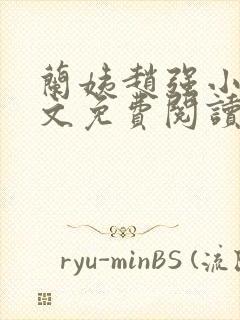 蘭姨趙强小
文免費閱讀
ryu-minBS (流